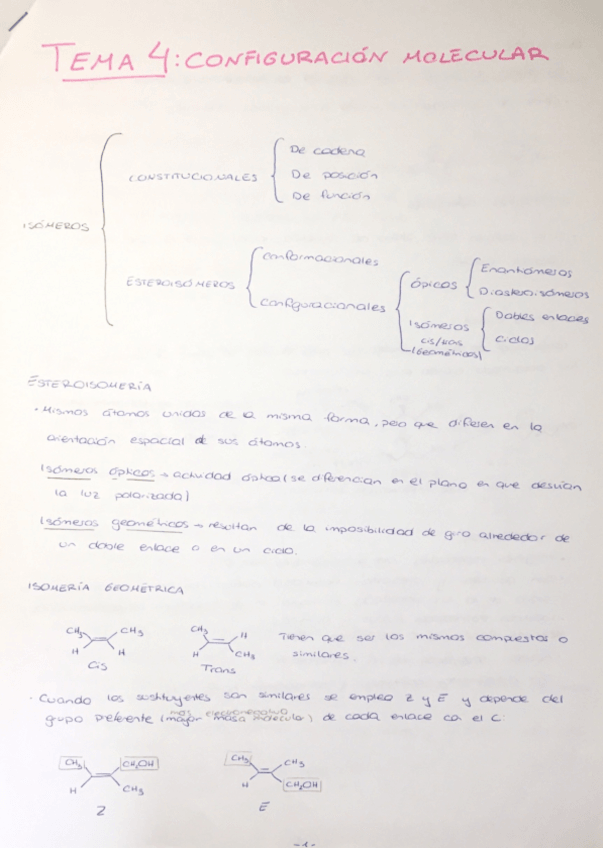 TEMA 4: CONFIGURACIÓN MOLECULAR
ISÓMEROS
CONSTITUCIONALES
De cadena
De posición
De función
ESTEROISÓMEROS
Conformacionales
Configuracionales
Ópicos
Enantiómeros
Diasteroisómeros
Isómeros
cis/trans
(Geométricos)
Dobles enlaces
Ciclos
ESTEROISOMERÍA
· Mismos átomos unidos de la misma forma, pero que difieren en la
orientación espacial de sus átomos.
Isómeros ópticos → actividad óptica (se diferencian en el plano en que desvían
la luz polarizada)
Isómeros geométricos → resultan de la imposibilidad de giro alrededor de
un doble enlace o en un ciclo.
ISOMERÍA GEOMÉTRICA
CH₃ CH₃
H H
Cis
CH₃ H
H CH₃
Trans
Tienen que ser los mismos compuestos o
similares.
· Cuando los sustituyentes son similares se emplea Z y E y depende del
más electronegativo
grupo preferente (mayor masa molecular) de cada enlace con el C.
CH₃ CH₂OH
H CH₃
Z
CH₃ CH₃
H CH₂OH
E
-1-